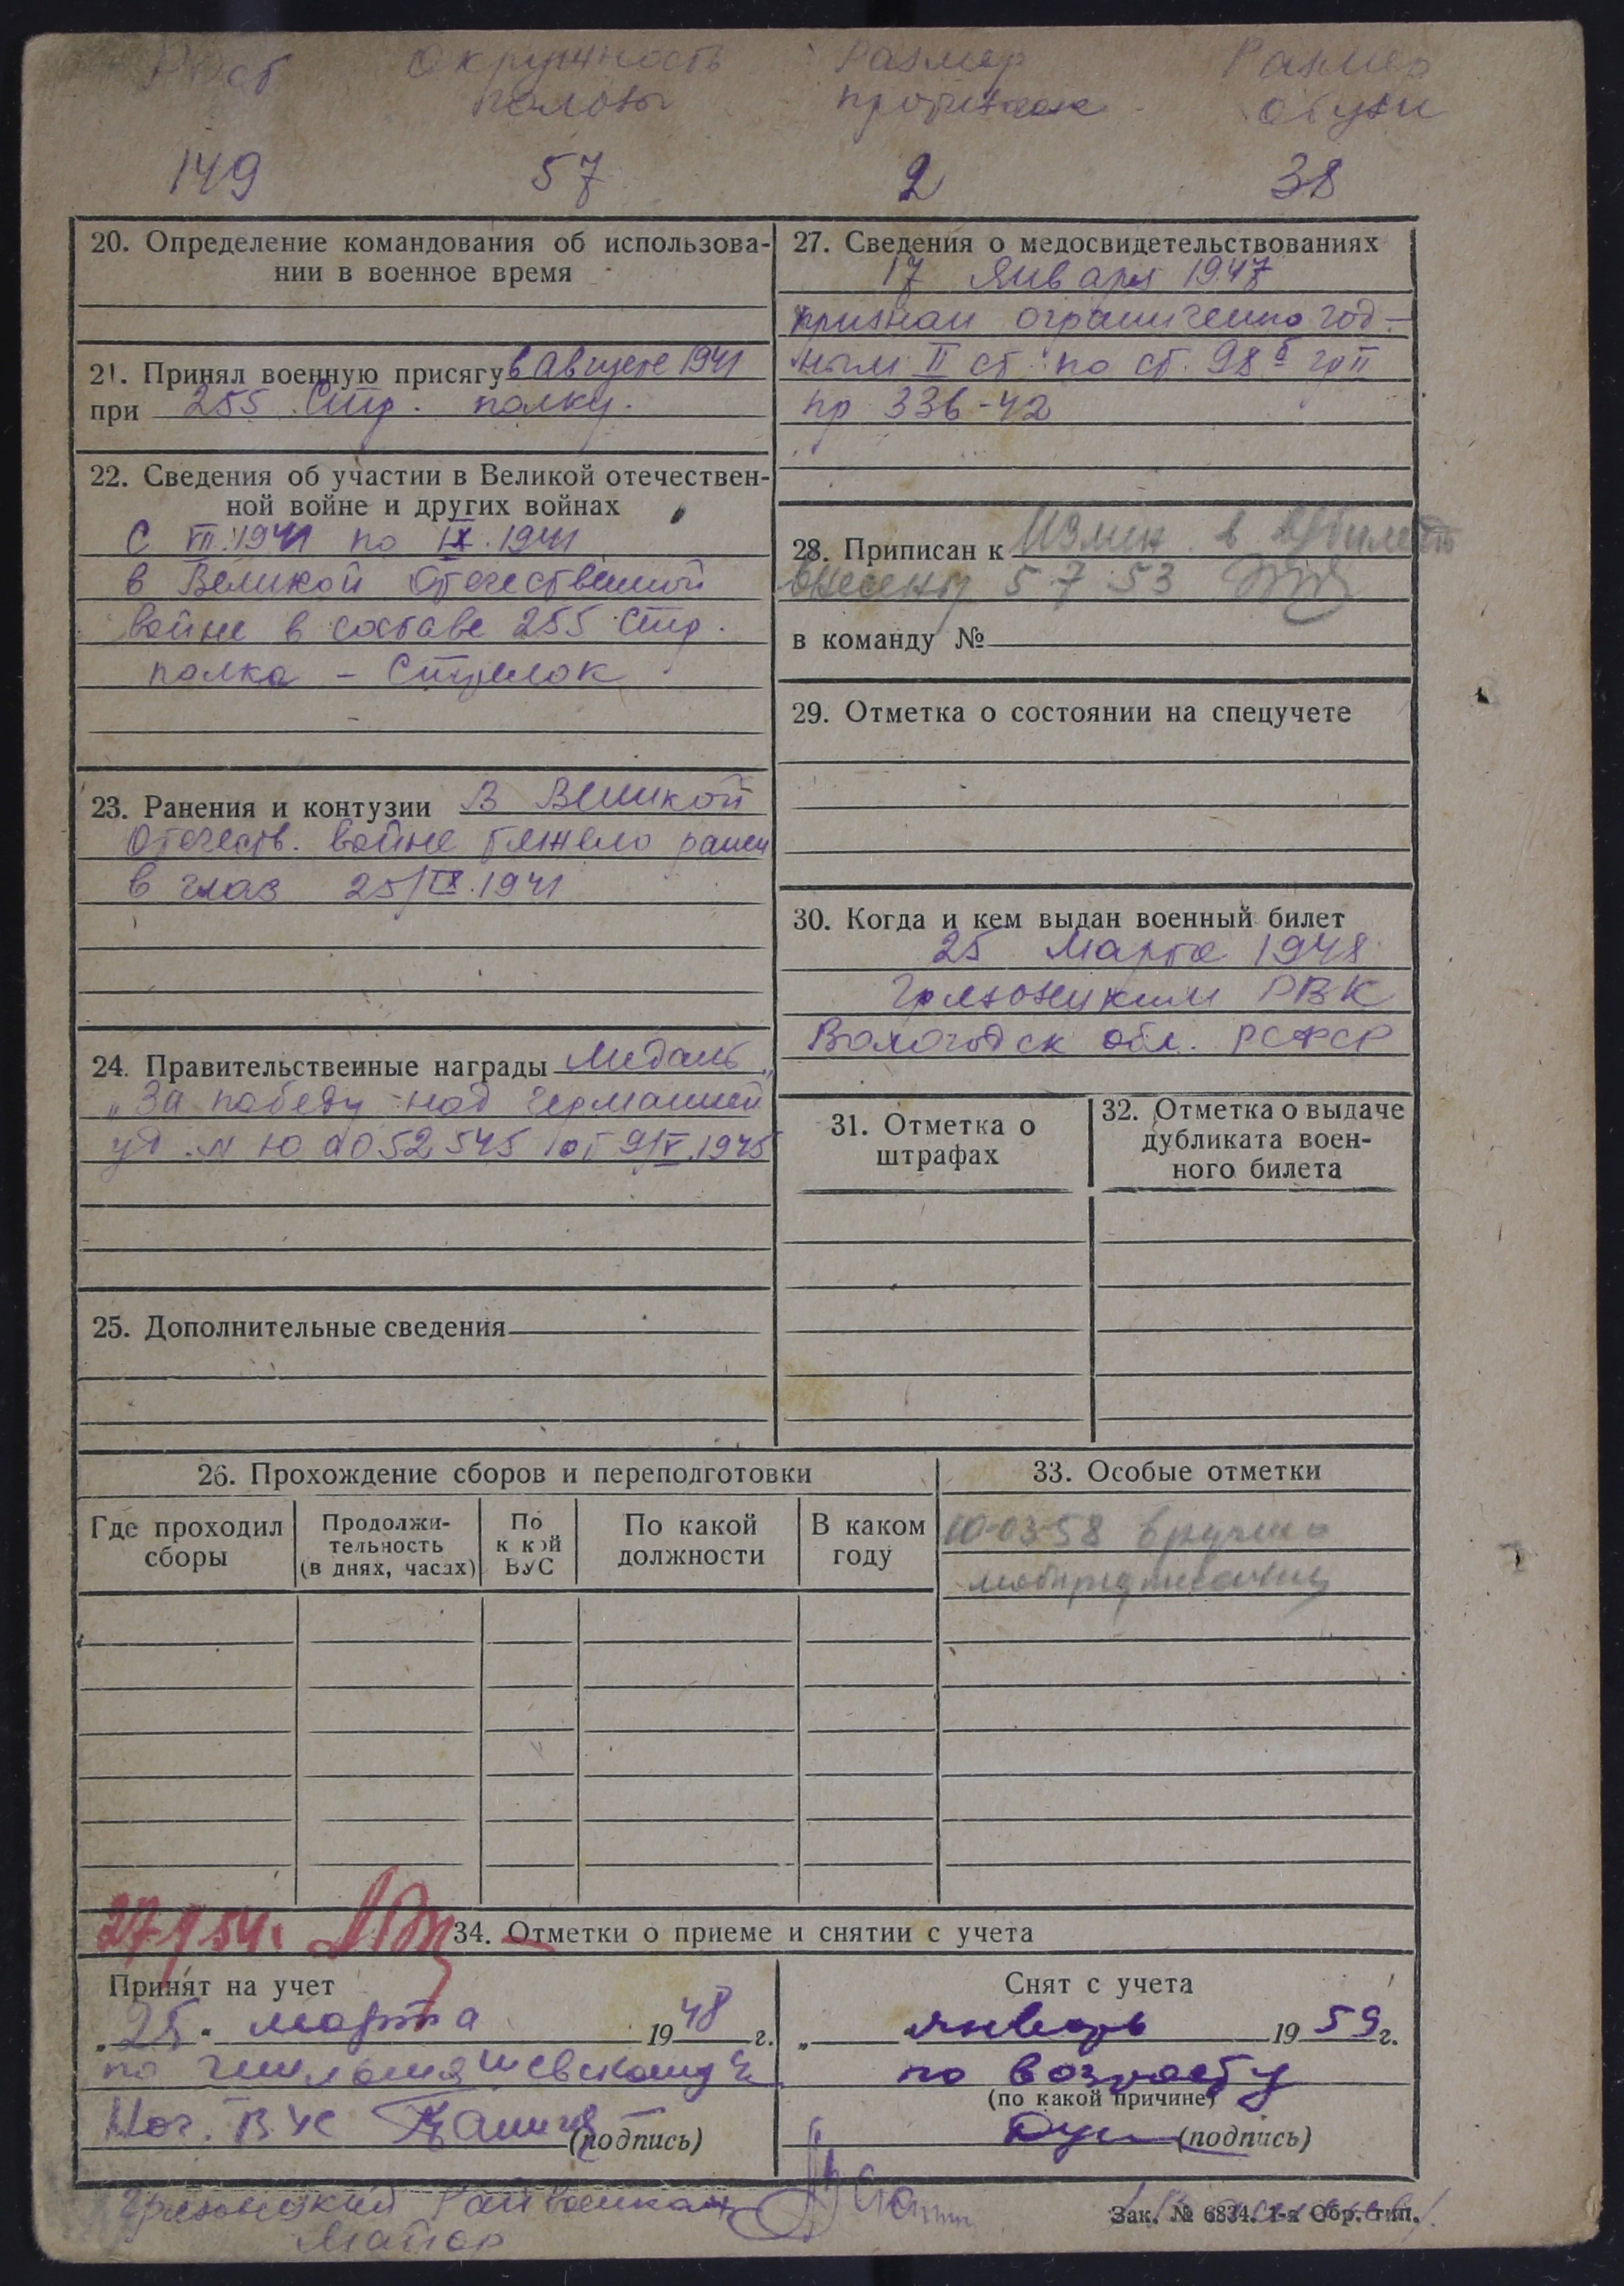 Рост Окружность Размер Размер
головы противогаза обуви
149 57 2 38
20. Определение командования об использова-
нии в военное время
21. Принял военную присягу в августе 1941
при 255 Стр. полку.
22. Сведения об участии в Великой отечествен-
ной войне и других войнах
С VII.1941 по IX.1941
в Великой Отечественной
войне в составе 255 Стр.
полка - Стрелок
23. Ранения и контузии В Великой
Отечеств. войне тяжело ранен
в глаз 25/IX.1941
24. Правительственные награды Медаль „
„За победу над Германией
уд. № Ю 0052545 от 9/V.1945
25. Дополнительные сведения
27. Сведения о медосвидетельствованиях
17 Января 1947
признан ограниченно год-
ным II ст. по ст. 98б гр II
пр 336-42
28. Приписан к Измен. в в/билет
внесены 5.7.53
в команду №
29. Отметка о состоянии на спецучете
30. Когда и кем выдан военный билет
25 Марта 1948
Грязовецким РВК
Вологодск обл. РСФСР
31. Отметка о
штрафах
32. Отметка о выдаче
дубликата воен-
ного билета
26. Прохождение сборов и переподготовки
Где проходил
сборы
Продолжи-
тельность
(в днях, часах)
По
к кой
ВУС
По какой
должности
В каком
году
33. Особые отметки
10-03-58 вручено
мобпредписание
27/I 54г.
34. Отметки о приеме и снятии с учета
Принят на учет
„25" марта 1948 г.
по
Нач. ВУС (подпись)
Снят с учета
„ январь 1959 г.
по возрасту
(по какой причине)
(подпись)
Грязовецкий Райвоенком
Майор
Зак. № 6834. 1-я Обр. тип.